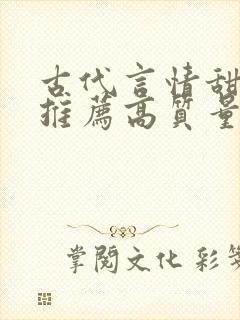 古代言情甜
推薦高質量
掌閱文化 彩